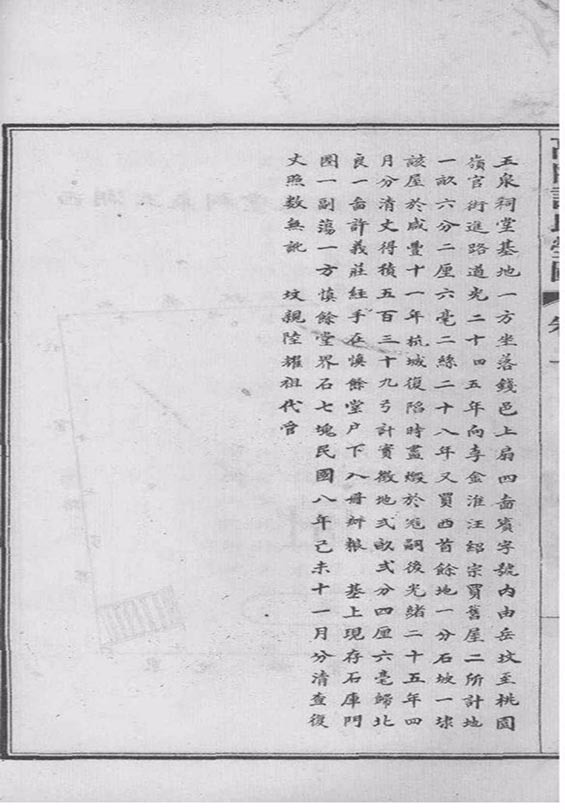 五泉祠堂基地一方坐落錢邑上扇四啚賓字號內由岳坟至桃園
嶺官街進路道光二十四五年向李金淮汪紹宗買舊屋二所計地
一畝六分二厘六毫二絲二十八年又買西首餘地一分石坡一埭
該屋於咸豐十一年杭城復陷時盡燬於冦嗣後光緒二十五年四
月分清丈得積五百三十九弓計實徵地弍畝弍分四厘六毫歸北
良一啚許義莊經手在慎餘堂户下入冊辦粮 基上現存石庫門
圈一副蕩一方慎餘堂界石七塊民國八年己未十一月分清查復
丈照数無訛 坟親陸耀祖代管